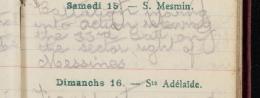 Samedi 15. — S. Mesmin.
Battalion moving
into action relieving
the 33rd Batt
the sector right of
Messines
Dimanche 16. — Ste Adélaïde.